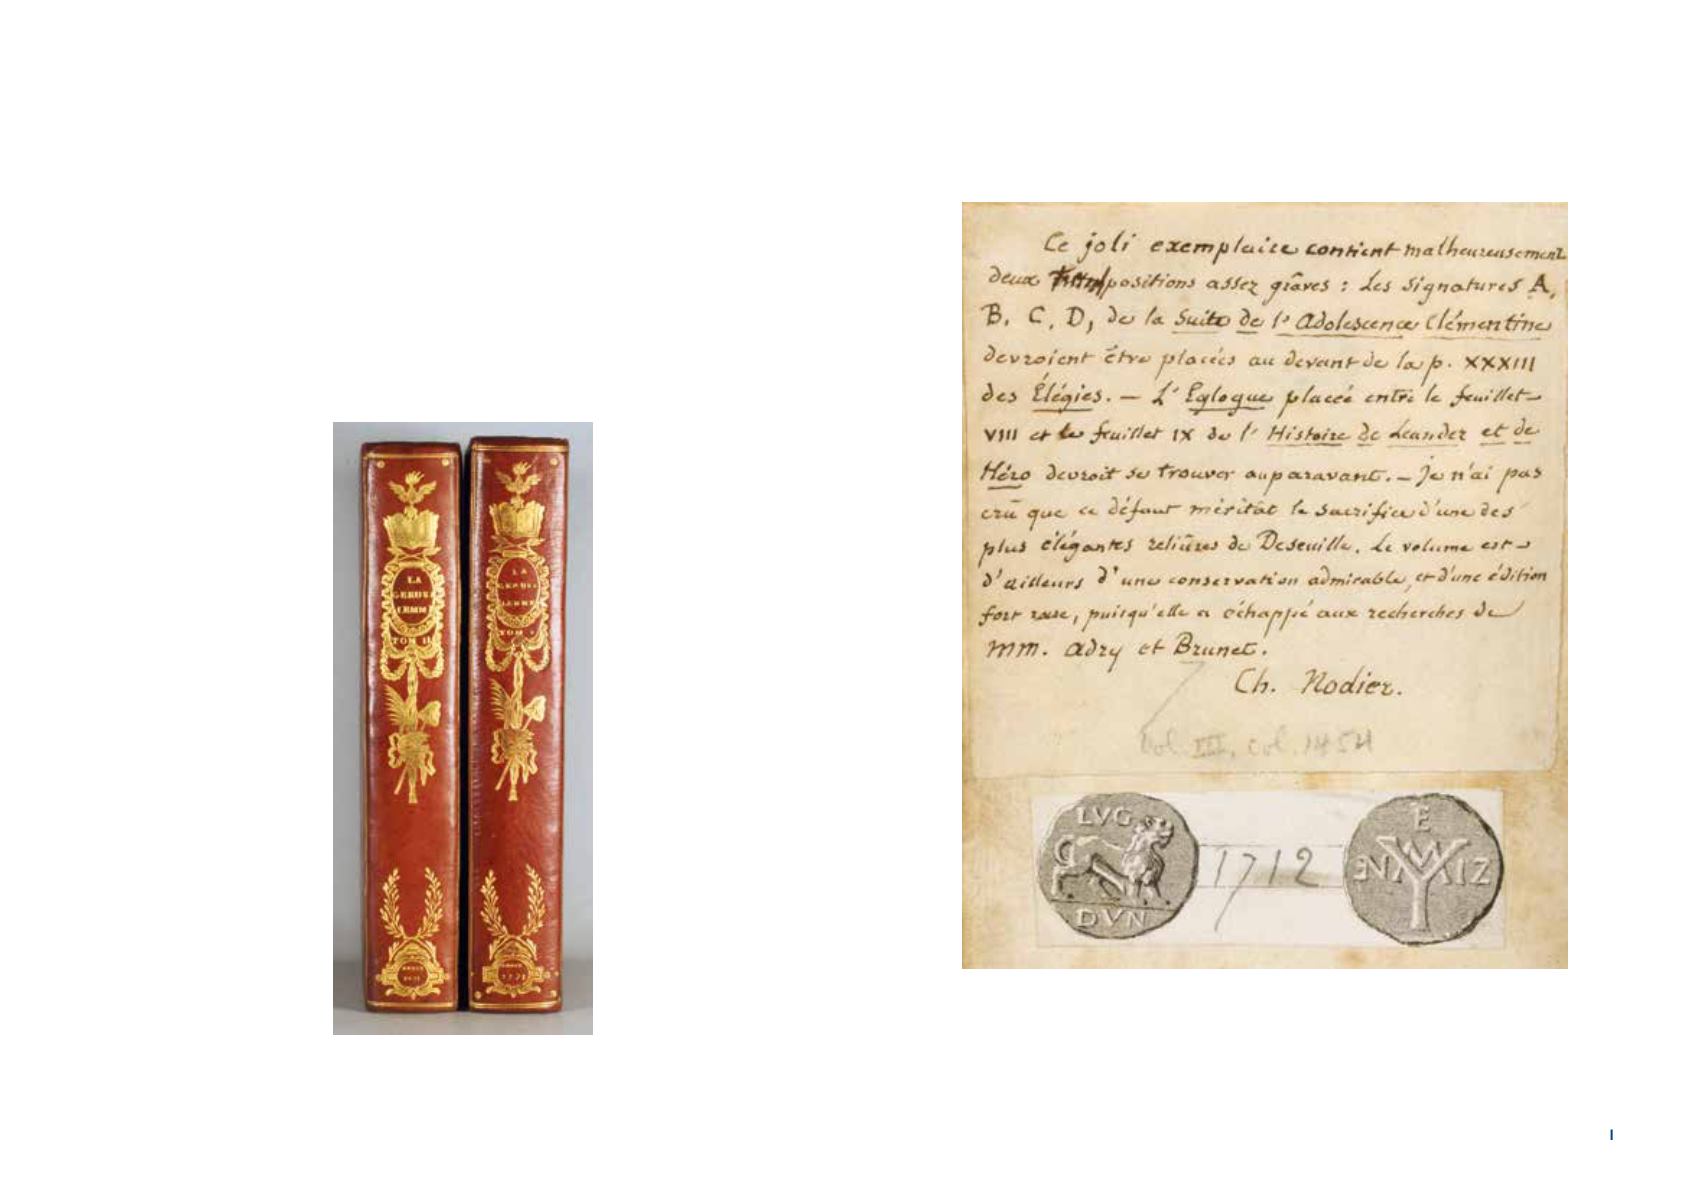 LA
GERUS
LEMM
TOM II
LA
GERUS
LEMM
TOM
Ce joli exemplaire contient malheureusement
deux positions assez grâves : Les signatures A,
B, C, D, de la Suite de l'Adolescence Clémentine
devroient être placées au devant de la p. XXXIII
des Élégies. — L'Eglogue placée entre le feuillet
VIII et le feuillet IX de l'Histoire de Leander et de
Héro devroit se trouver auparavant. — Je n'ai pas
crû que ce défaut méritât le sacrifice d'une des
plus élégantes reliûres de Deseuille. Le volume est
d'ailleurs d'une conservation admirable, et d'une édition
fort rare, puisqu'elle a échappé aux recherches de
MM. Adry et Brunet.
Ch. Nodier.
Vol. III, col. 1454
LVG
DVN
1712
E
I